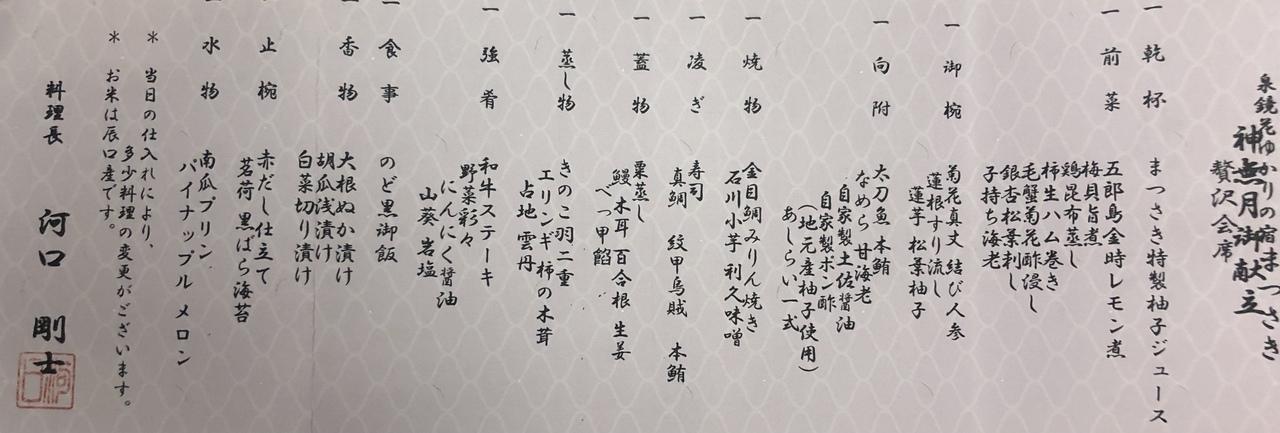 泉鏡花ゆかりの宿まつさき
神無月御献立
贅沢会席
一 乾杯
まつさき特製柚子ジュース
一 前菜
五郎島金時レモン煮
梅貝旨煮
鶏昆布蒸し
柿生ハム巻き
毛蟹菊花酢浸し
銀杏松葉刺し
子持ち海老
一 御椀
菊花真丈 結び人参
蓮根すり流し
蓮芋 松葉柚子
一 向附
太刀魚 本鮪
なめら 甘海老
自家製土佐醤油
自家製ポン酢
(地元産柚子使用)
あしらい一式
一 焼物
金目鯛みりん焼き
石川小芋 利久味噌
一 凌ぎ
寿司
真鯛 紋甲烏賊 本鮪
一 蓋物
粟蒸し
鰻 木耳 百合根 生姜
べっ甲餡
一 蒸し物
きのこ羽二重
エリンギ 柿の木茸
占地 雲丹
一 強肴
和牛ステーキ
野菜彩々
にんにく醤油
山葵 岩塩
一 食事
のど黒御飯
一 香物
大根ぬか漬け
胡瓜浅漬け
白菜切り漬け
止椀
赤だし仕立て
茗荷 黒ばら海苔
一 水物
南瓜プリン
パイナップル メロン
* 当日の仕入れにより、
多少料理の変更がございます。
* お米は辰口産です。
料理長 河口 剛士